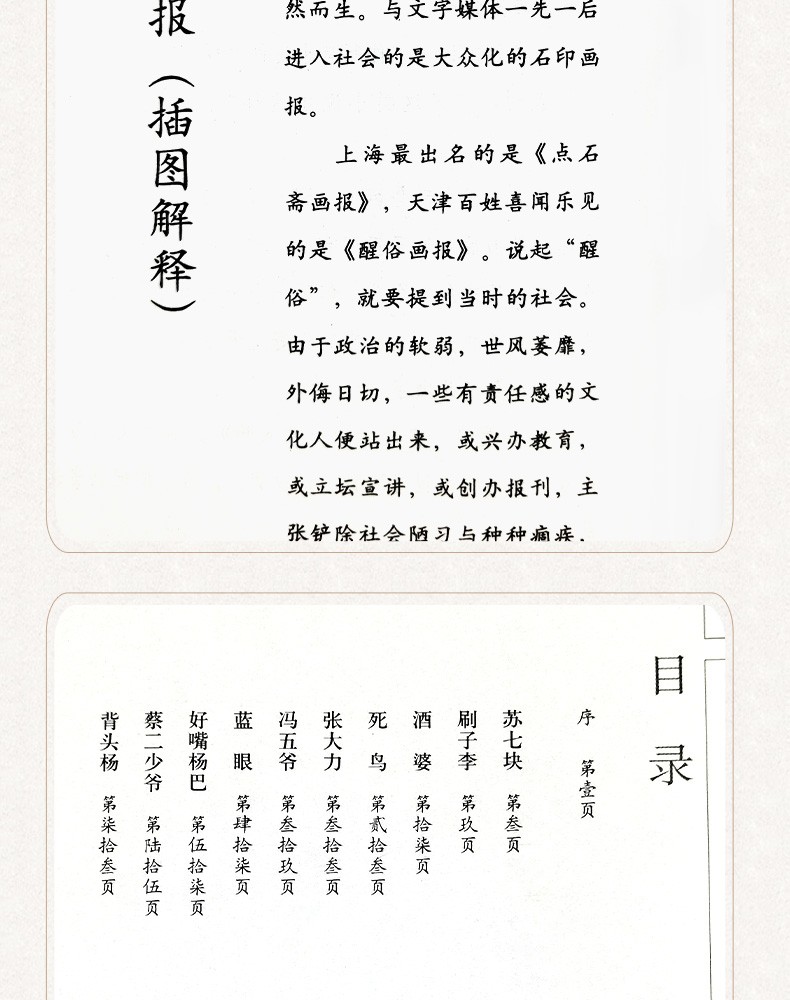 报（插图解释）
然而生。与文字媒体一先一后
进入社会的是大众化的石印画
报。
上海最出名的是《点石
斋画报》，天津百姓喜闻乐见
的是《醒俗画报》。说起“醒
俗”，就要提到当时的社会。
由于政治的软弱，世风萎靡，
外侮日切，一些有责任感的文
化人便站出来，或兴办教育，
或立坛宣讲，或创办报刊，主
张铲除社会陋习与种种痼疾，
目录
序 第壹页
苏七块 第叁页
刷子李 第玖页
酒婆 第拾柒页
死鸟 第贰拾叁页
张大力 第叁拾叁页
冯五爷 第叁拾玖页
蓝眼 第肆拾柒页
好嘴杨巴 第伍拾柒页
蔡二少爷 第陆拾伍页
背头杨 第柒拾叁页